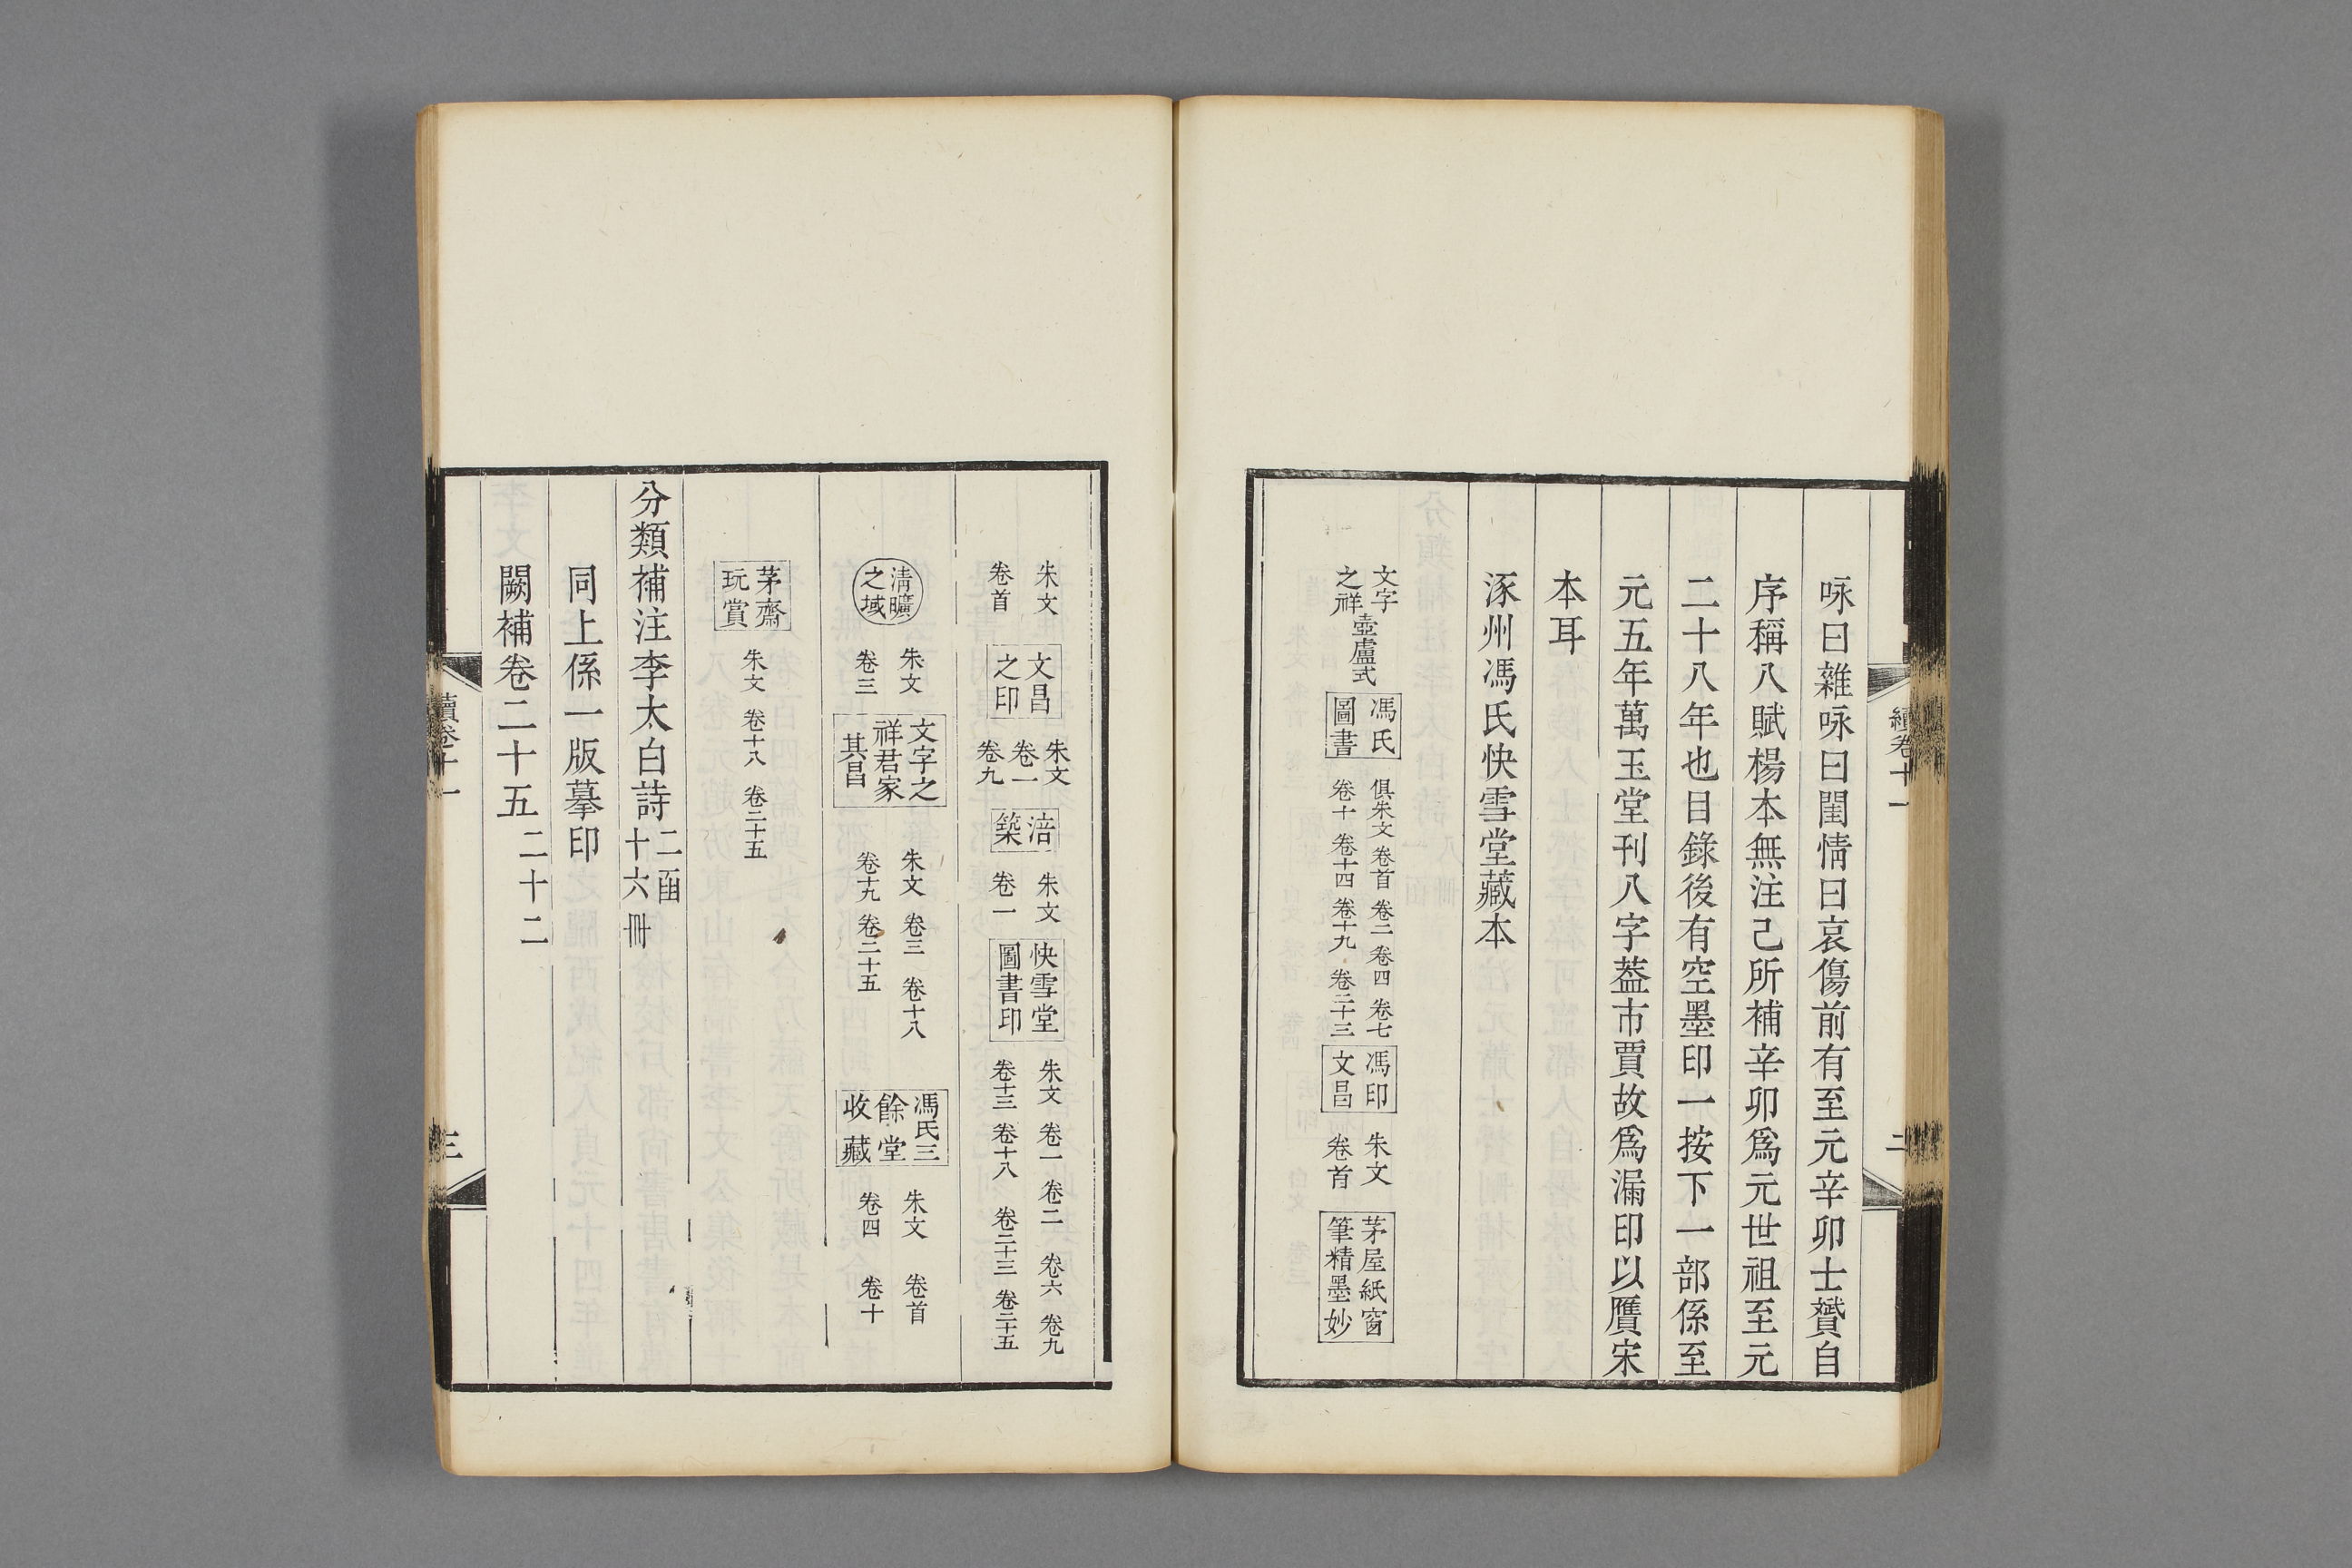 咏曰雜咏曰閨情曰哀傷前有至元辛卯士贇自
序稱八賦楊本無注己所補辛卯爲元世祖至元
二十八年也目錄後有空墨印一按下一部係至
元五年萬玉堂刊八字葢市賈故爲漏印以贋宋
本耳
涿州馮氏快雪堂藏本
文字之祥
壺盧式
馮氏圖書
俱朱文 卷首 卷二 卷四 卷七
卷十 卷十四 卷十九 卷二十三
馮印文昌
朱文
卷首
茅屋紙窗
筆精墨妙
續卷十一
二
朱文
卷首
文昌之印
朱文
卷一
卷九
涪築
朱文
卷一
快雪堂
圖書印
朱文 卷一 卷二 卷六 卷九
卷十三 卷十八 卷二十三 卷二十五
清曠之域
朱文
卷三
文字之
祥君家
其昌
朱文 卷三 卷十八
卷十九 卷二十五
馮氏三
餘堂
收藏
朱文 卷首
卷四 卷十
茅齋玩賞
朱文 卷十八 卷二十五
分類補注李太白詩
二函
十六冊
同上係一版摹印
闕補卷二十五
二十二
續卷十一
三